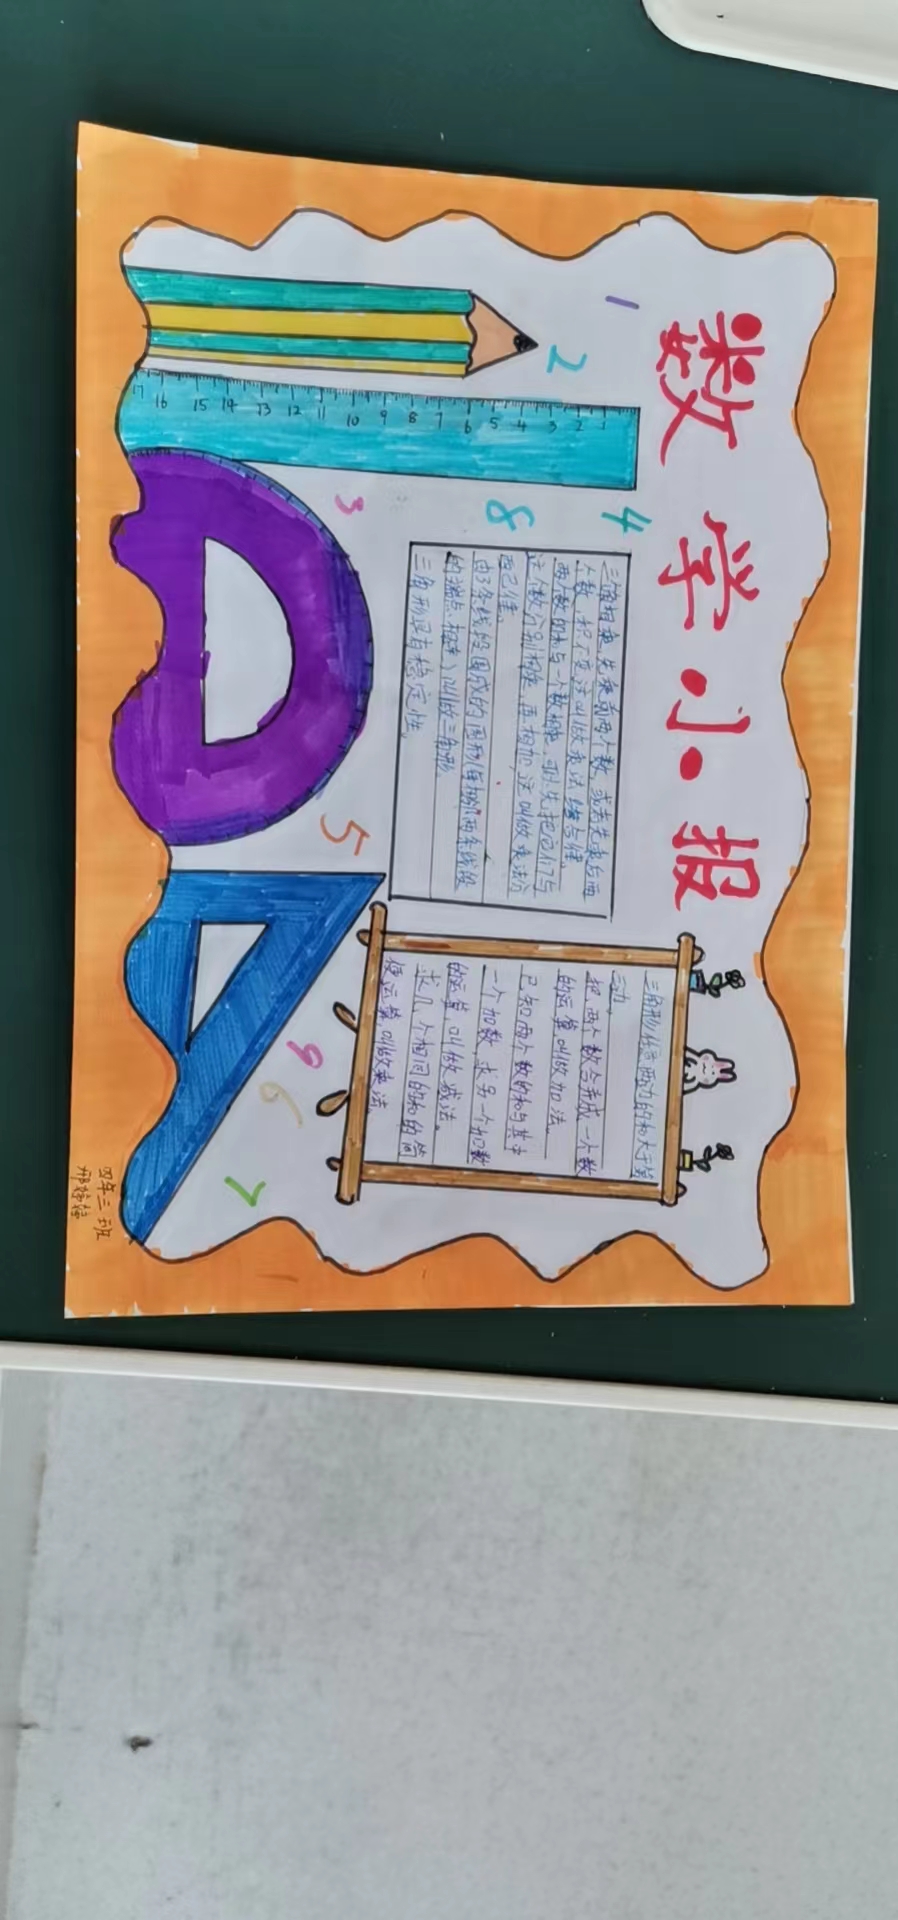 数学小报
1
2
3
8
4
5
9
6
7
1 2 3 4 5 6 7 8 9 10 11 12 13 14 15 16 17
三个数相乘,先乘前两个数,或者先乘后两
个数,积不变,这叫做乘法结合律。
两个数的和与一个数相乘,可以先把它们与
这个数分别相乘,再相加,这叫做乘法分
配律。
由3条线段围成的图形(每相邻两条线段
的端点相连)叫做三角形。
三角形具有稳定性。
三角形任意两边的和大于第
三边。
把两个数合并成一个数
的运算,叫做加法。
已知两个数的和与其中
一个加数,求另一个加数
的运算,叫做减法。
求几个相同的和的简
便运算,叫做乘法。
四年三班